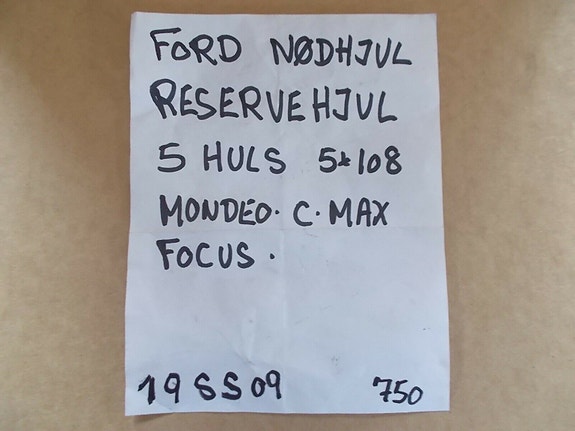 FORD NØDHJUL
RESERVEHJUL
5 HULS 5*108
MONDEO. C. MAX
FOCUS.
19 SS 09 750